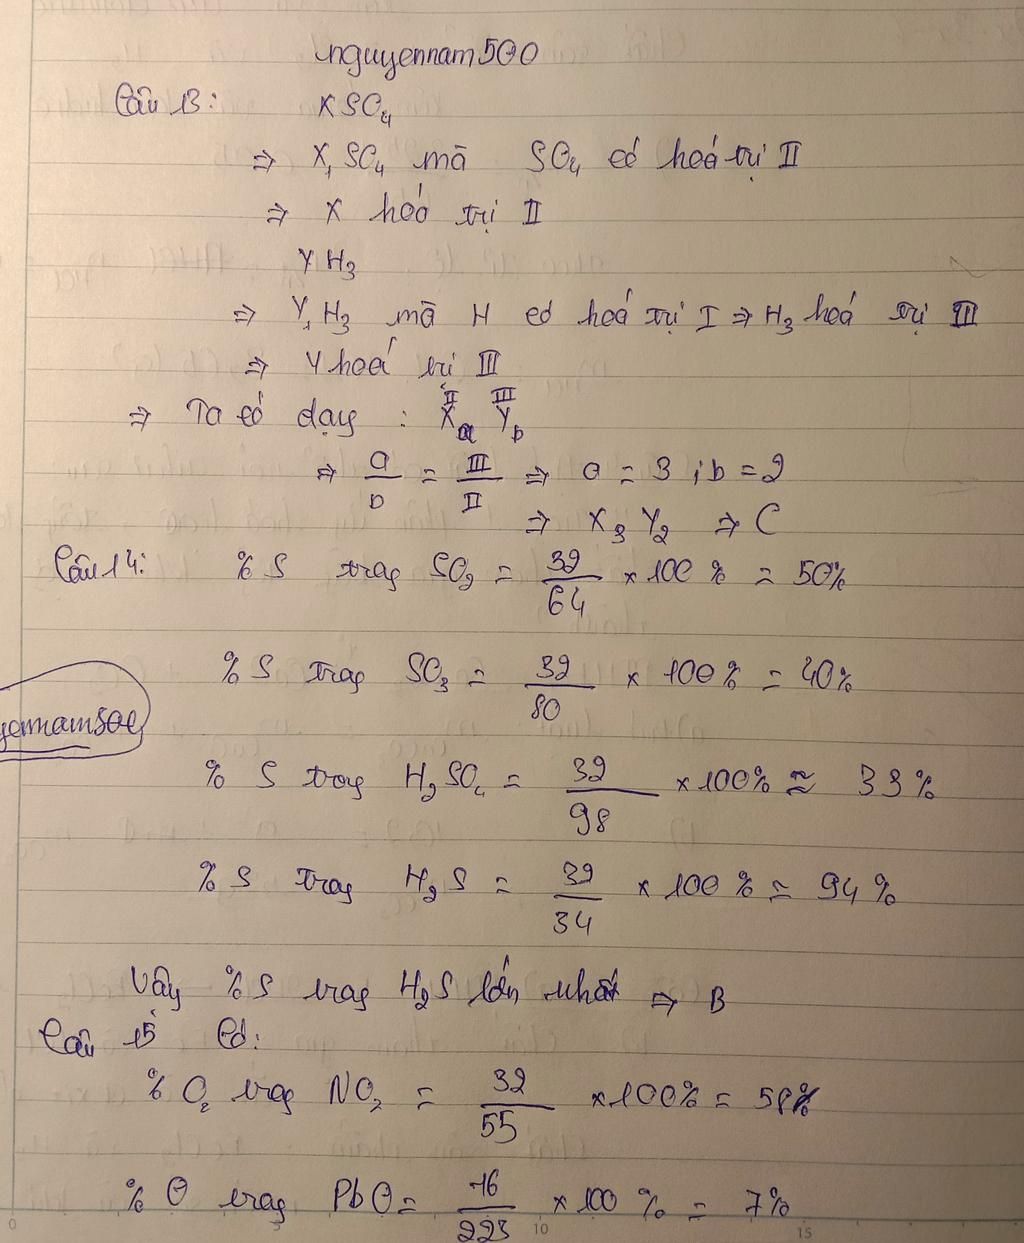 nguyennam500
Câu 13: XSO4
⇒ X1SO4 mà SO4 có hoá trị II
⇒ X hoá trị II
YH3
⇒ Y1H3 mà H có hoá trị I ⇒ H3 hoá trị III
⇒ Y hoá trị III
⇒ Ta có dạng : X^II_a Y^III_b
⇒ a/b = III/II ⇒ a = 3 ; b = 2
⇒ X3Y2 ⇒ C
Câu 14: % S trong SO2 = 32/64 × 100 % = 50%
% S trong SO3 = 32/80 × 100 % = 40%
yennam500
% S trong H2SO4 = 32/98 × 100% ≈ 33 %
% S trong H2S = 32/34 × 100 % = 94 %
Vậy % S trong H2S lớn nhất ⇒ B
Câu 15 Có:
% O2 trong NO2 = 32/55 × 100% = 58%
% O trong PbO = 16/223 × 100 % = 7%
0 10 15